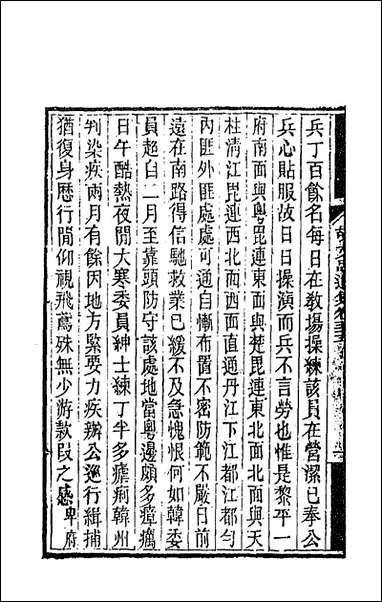 兵丁百餘名每日在教場操練該員在營潔已奉公
兵心貼服故日日操演而兵不言勞也惟是黎平一
府南面與粵毘連東面與楚毘連東北面北面與天
柱清江毘連西北面西面直通丹江下江都江都勻
內匪外匪處處可通自慚布置不密防範不嚴日前
遠在南路得信馳救業已緩不及急愧恨何如韓委
員超自二月至靠頭防守該處地當粵邊頗多瘴癘
日午酷熱夜間大寒委員紳士練丁半多瘧痢韓州
判染疾兩月有餘因地方緊要力疾辦公巡行緝捕
猶復身歷行間仰視飛鳶殊無少游款段之感卑府